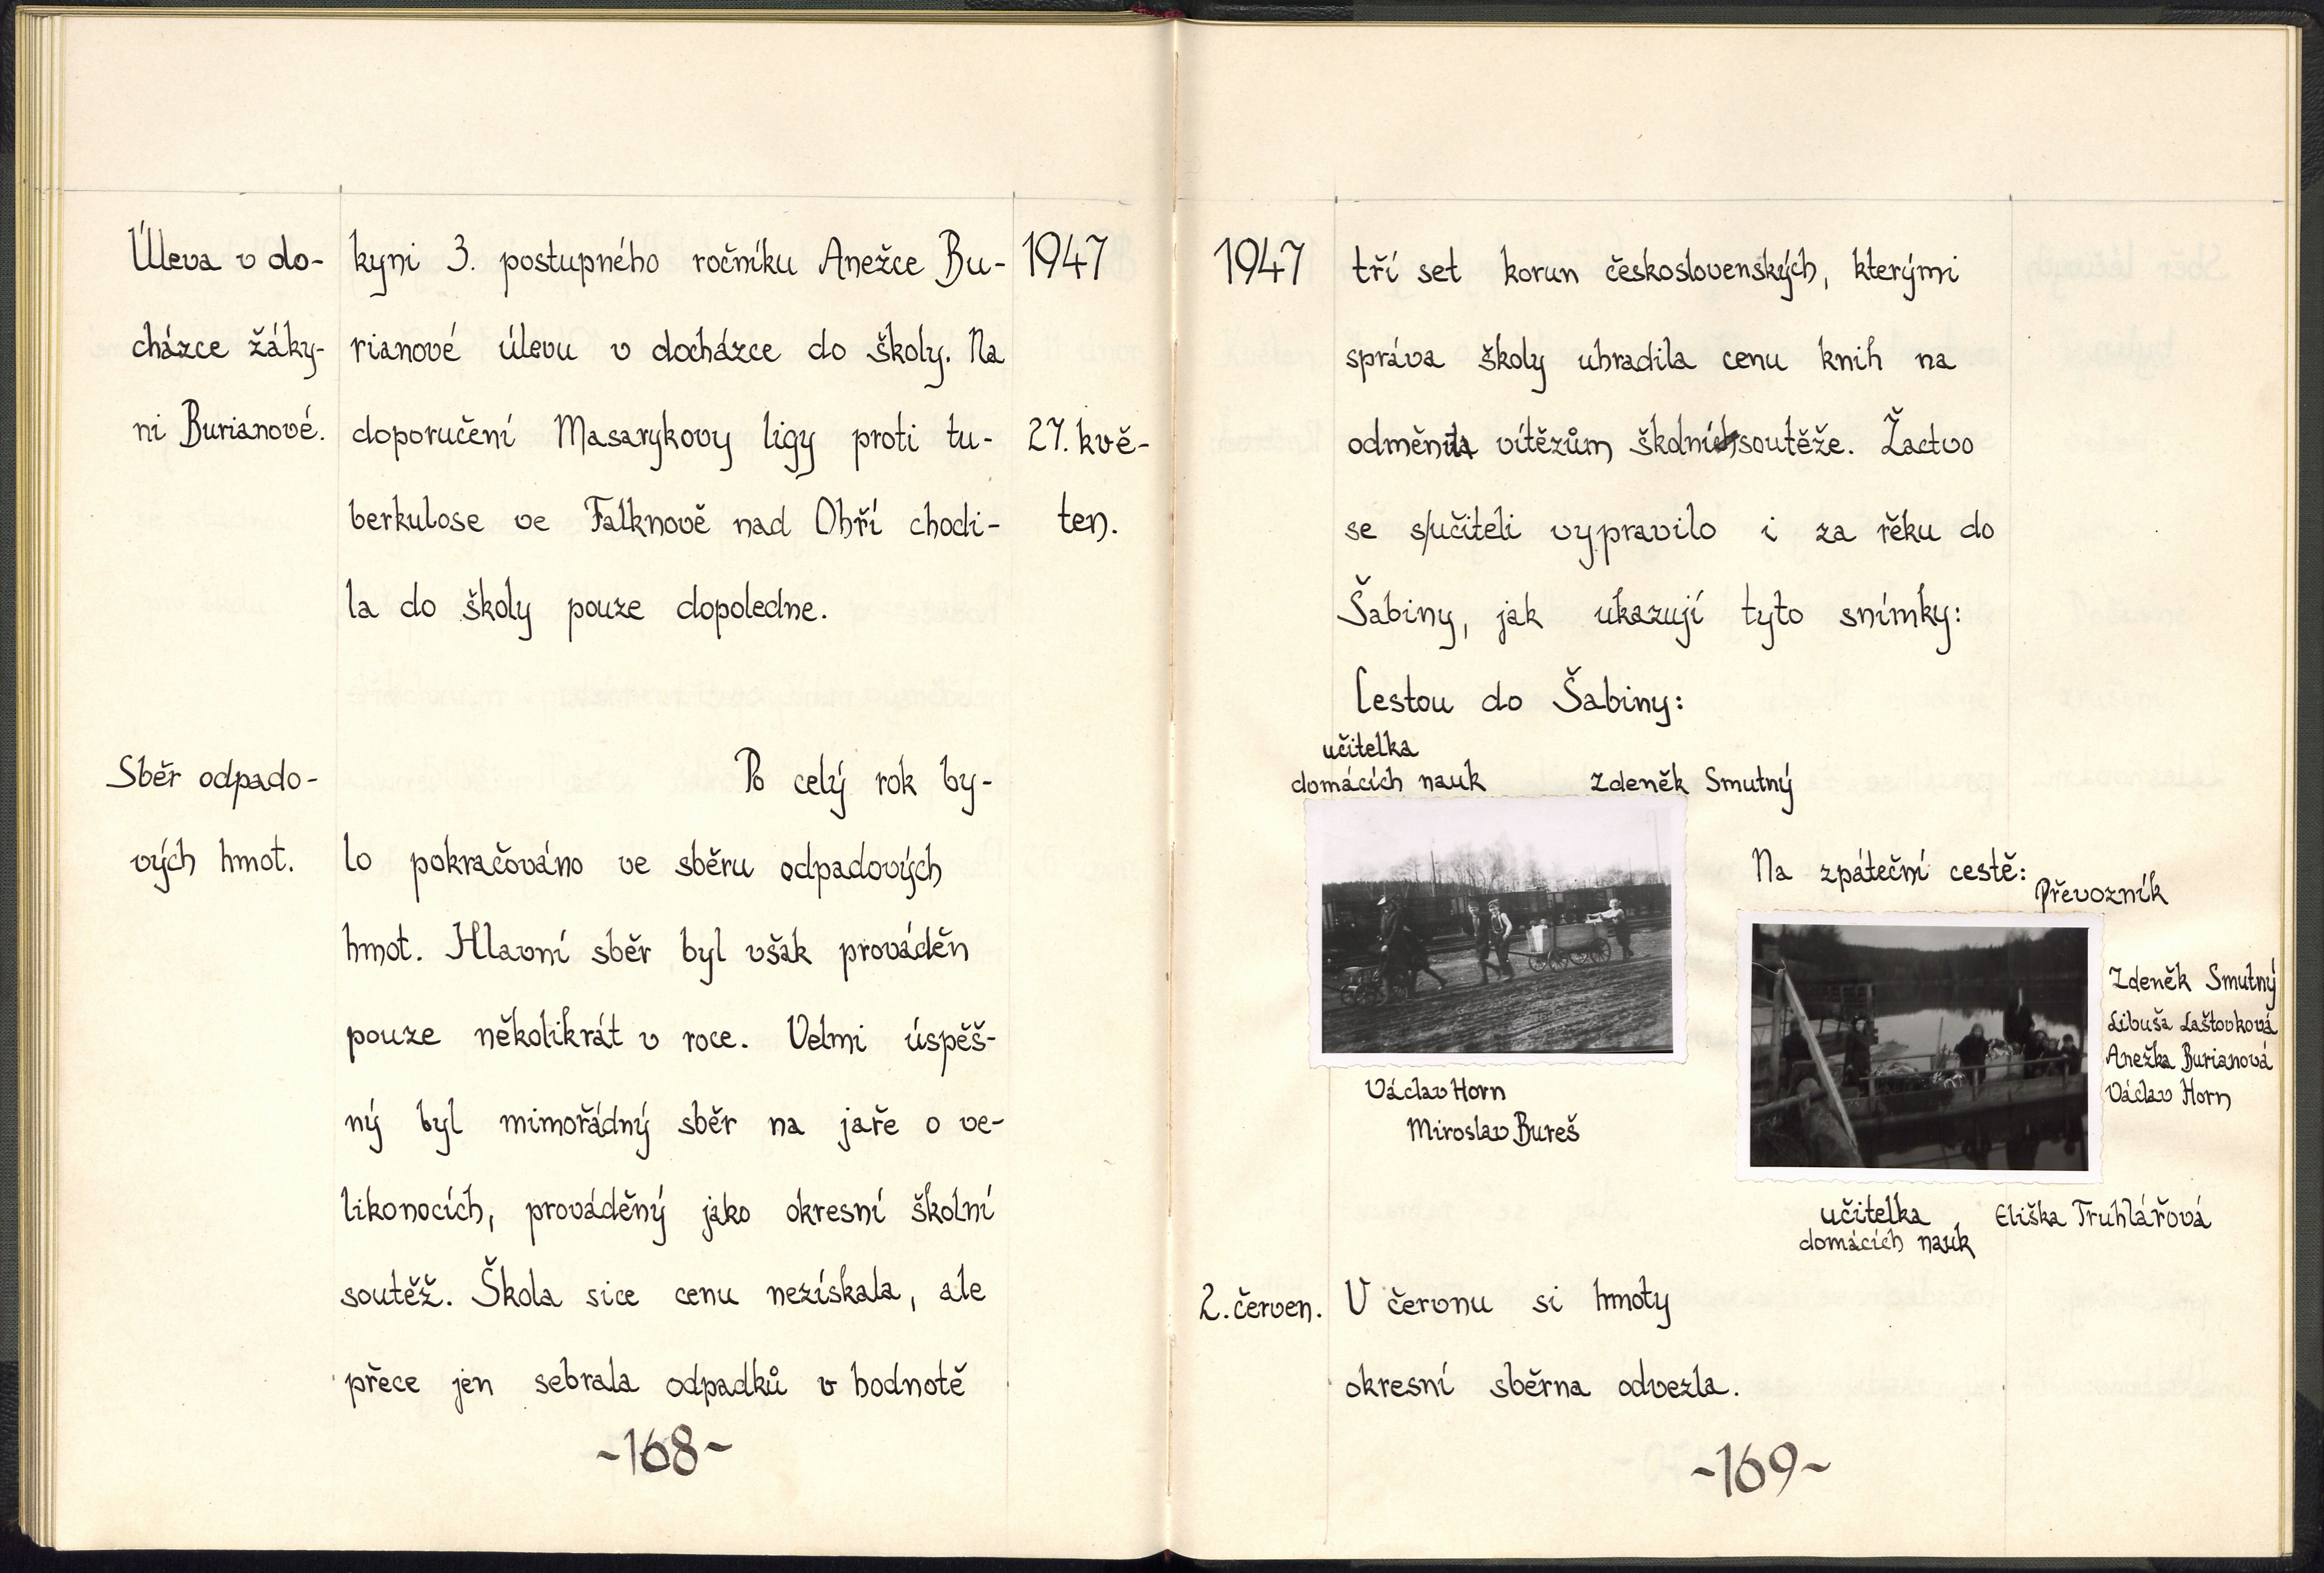 Úleva v do-
cházce žáky-
ni Burianové.
kyni 3. postupného ročníku Anežce Bu-
rianové úlevu v docházce do školy. Na
doporučení Masarykovy ligy proti tu-
berkulose ve Falknově nad Ohří chodi-
la do školy pouze dopoledne.
1947
27. kvě-
ten.
Sběr odpado-
vých hmot.
Po celý rok by-
lo pokračováno ve sběru odpadových
hmot. Hlavní sběr byl však prováděn
pouze několikrát v roce. Velmi úspěš-
ný byl mimořádný sběr na jaře o ve-
likonocích, prováděný jako okresní školní
soutěž. Škola sice cenu nezískala, ale
přece jen sebrala odpadků v hodnotě
~168~
1947
tří set korun československých, kterými
správa školy uhradila cenu knih na
vítězům soutěže. Žactvo
se s učiteli vypravilo i za řěku do
Šabiny, jak ukazují tyto snímky:
Cestou do Šabiny:
učitelka
domácích nauk
Zdeněk Smutný
Václav Horn
Miroslav Bureš
Na zpáteční cestě:
Převozník
Zdeněk Smutný
Libuša Laštovková
Anežka Burianová
Václav Horn
učitelka
domácích nauk
Eliška Truhlářová
2. červen.
V červnu si hmoty
okresní sběrna odvezla.
~169~